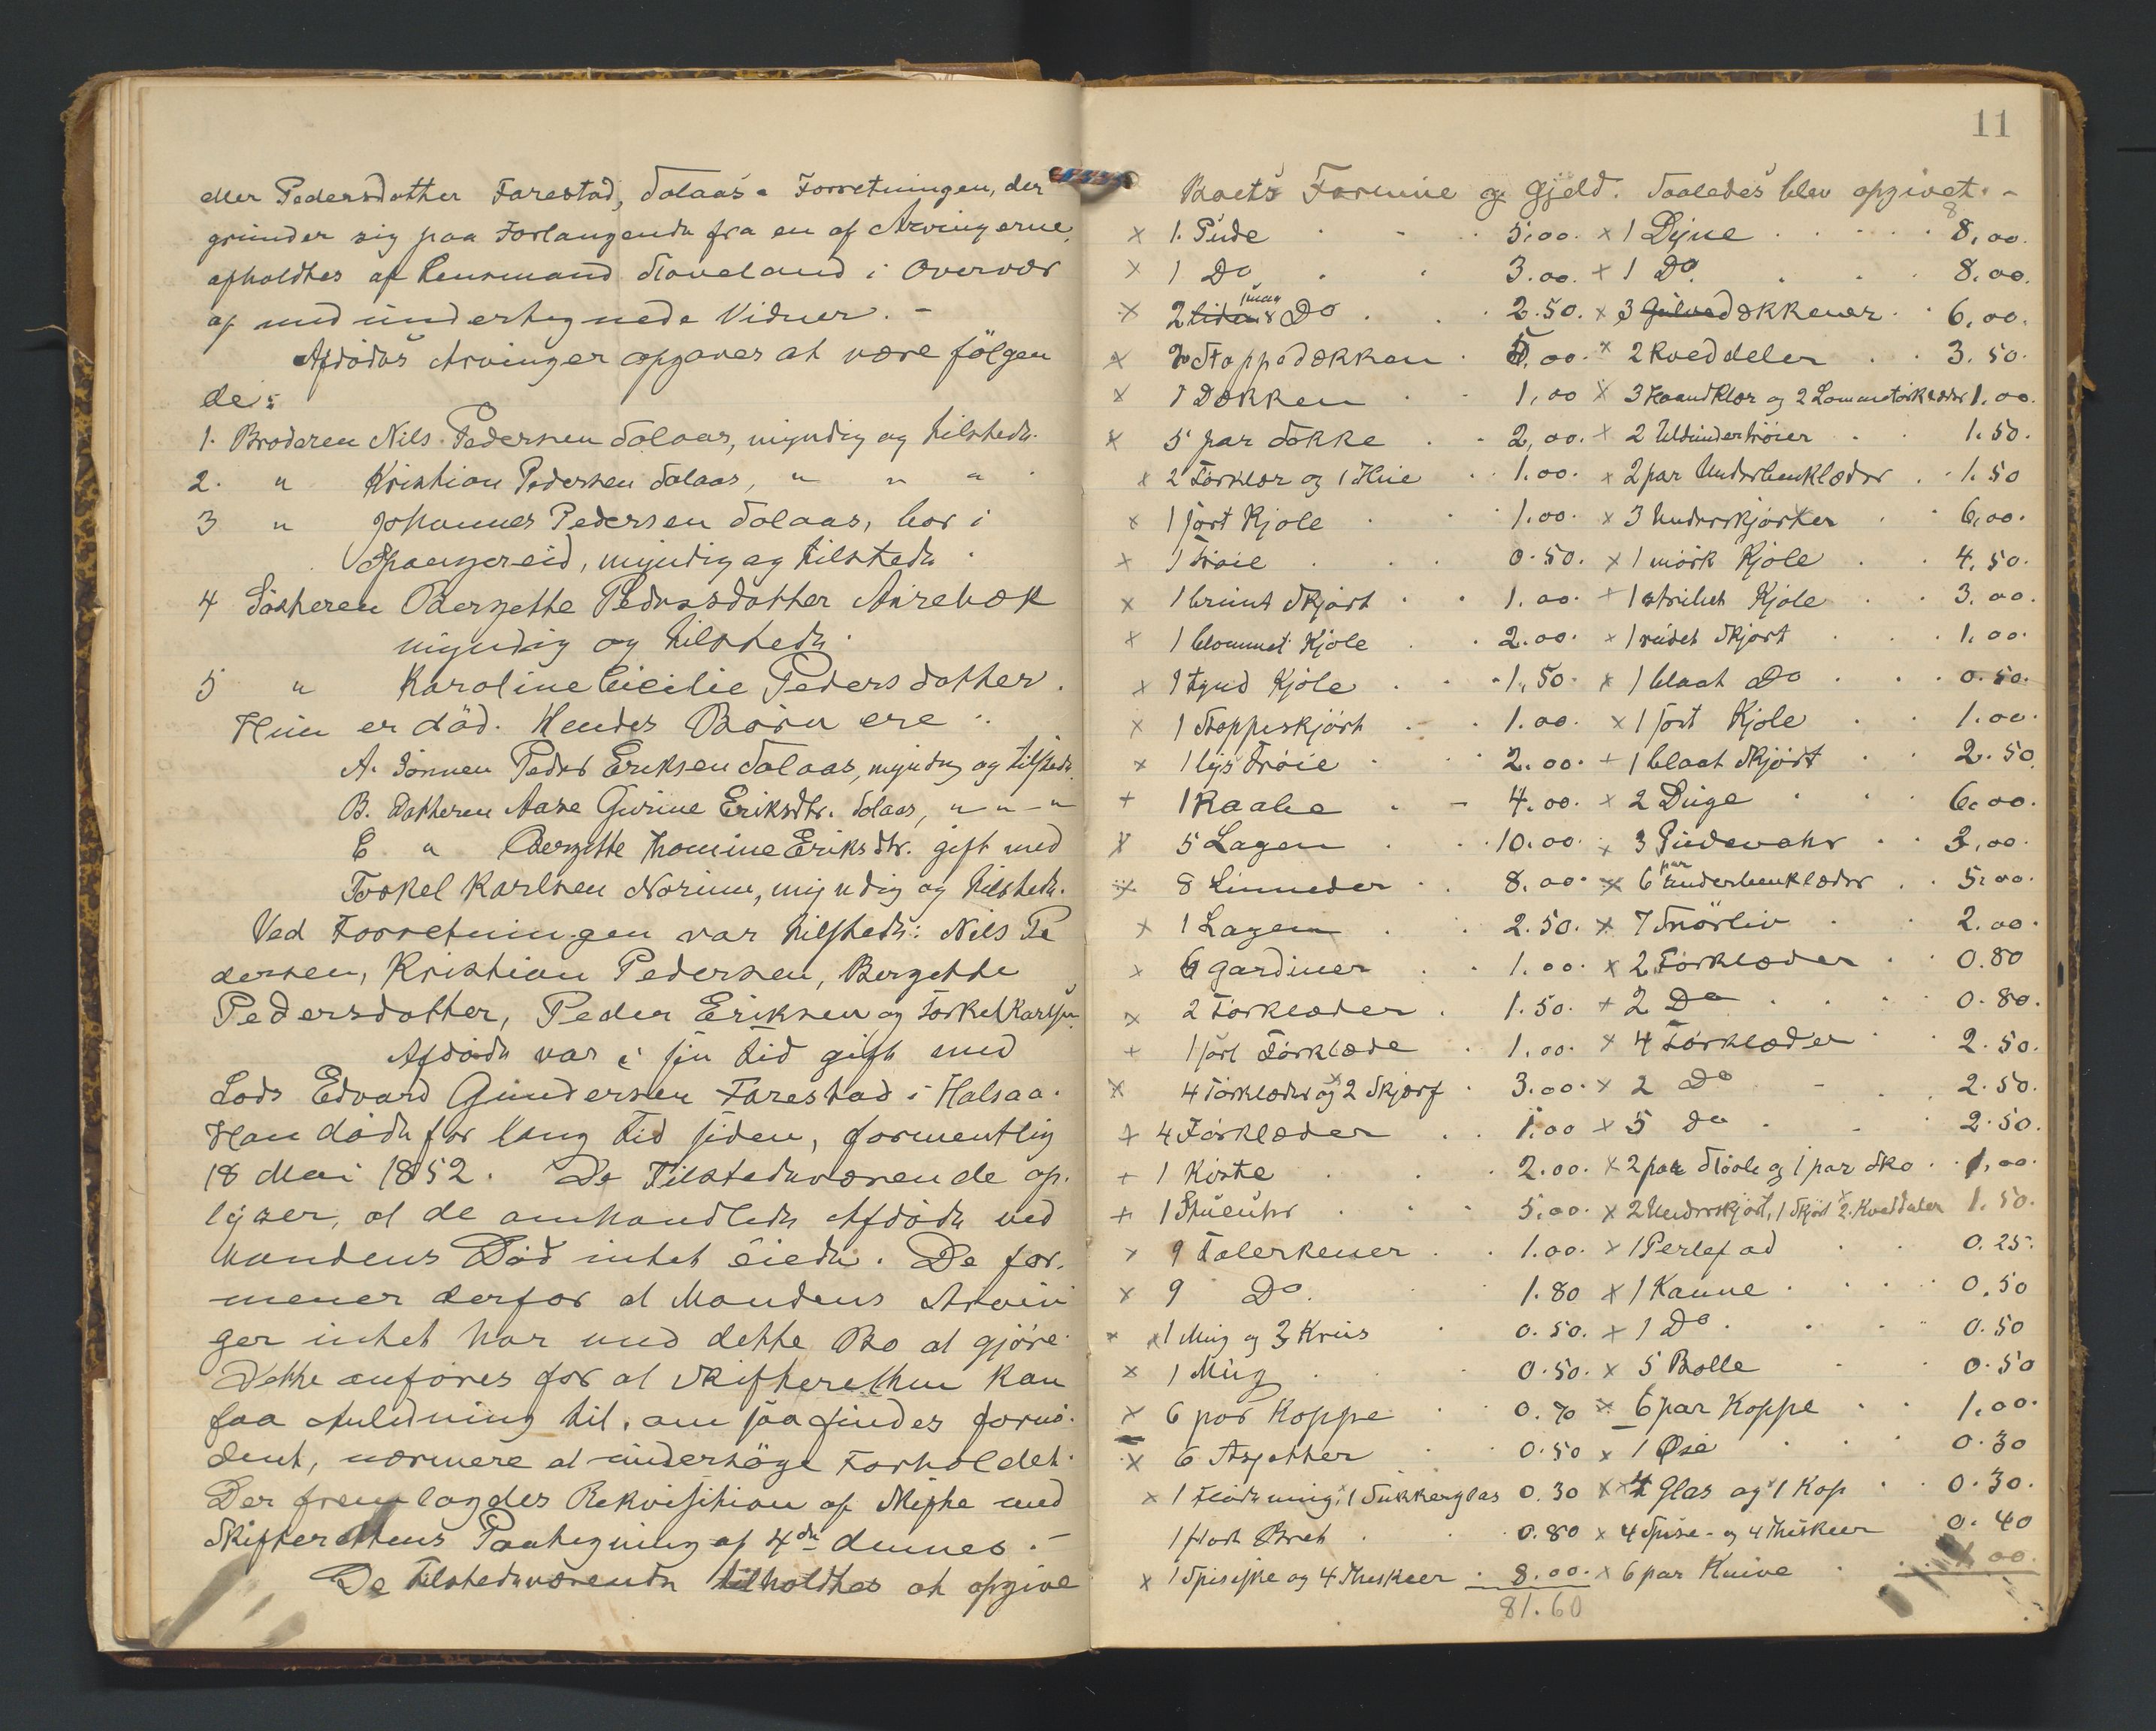 eller Pedersdatter Farestad, Solaas. Forretningen, der
grunder sig paa Forlangende fra en af Arvingerne,
afholdtes af Lensmand Stoveland i Overvær
af medundertegnede Vidner. -
Afdødes Arvinger opgaves at være følgen
de:
1. Broderen Nils Pedersen Solaas, myndig og tilstede.
2. " Kristian Pedersen Solaas, " " "
3 " Johannes Pedersen Solaas, bor i
Spangereid, myndig og tilstede.
4 Søsteren Bergette Pedersdatter
myndig og tilstede.
5 " Karoline Cicilie Pedersdatter.
Hun er død. Hendes Børn ere :
A. Sønnen Peder Eriksen Solaas, myndig og tilstede.
B. Datteren Aase Gurine Eriksdtr. Solaas, " " - "
C. " Bergitte Thomine Eriksdtr. gift med
Torkel Karlsen Norum, myndig og tilstede.
Ved Forretningen var tilstede: Nils Pe
dersen, Kristian Pedersen, Bergette
Pedersdatter, Peder Eriksen og Torkel Karlsen.
Afdøde var i sin tid gift med
Lods Edvard Gundersen Farestad i Halsaa.
Han døde for lang tid siden, formentlig
18 Mai 1852. De Tilstedeværende op-
lyser, at de omhandlede Afdøde ved
Mandens Død intet eiede. De for-
mener derfor at Mandens Arvin
ger intet har med dette Bo at gjøre.
Dette anføres for at Skifteretten kan
faa Anledning til, om saa findes fornø-
dent, nærmere at undersøge Forholdet.
Der fremlagdes Rekvisition af Skifte med
Skifterettens Paategning af 4de dennes. -
De Tilstedeværende tilholdtes at opgive
11
Boets Formue og Gjeld. Saaledes blev opgivet. -
x 1 Pude 5.00. x 1 Dyne 8.00.
x 1 Do 3.00. x 1 Do. 8.00.
x 2 smaa Do 2.50. x 3 Gulvdækkener 6.00.
x 2 Stoppedækken 5.00. x 2 Kveddeler 3.50.
x 1 Dækken 1.00 x 3 Haandklær og 2 Lommetørklæder 1.00.
x 5 par Sokke 2.00. x 2 Uldundertrøier 1.50.
x 2 Tørklær og 1 Hue 1.00. x 2 par Underbenklæder 1.50
x 1 sort Kjole 1.00. x 3 Underskjørter 6.00.
x 1 Trøie 0.50. x 1 mørk Kjole 4.50.
x 1 brunt Skjørt 1.00. + 1 stribet Kjole 3.00.
x 1 blommet Kjole 2.00. x 1 rudet Skjørt 1.00.
x 1 tynd Kjole 1.50. x 1 blaat Do 0.50.
x 1 Stoppeskjørt 1.00. x 1 sort Kjole 1.00.
x 1 lys Trøie 2.00. + 1 blaat Skjørt 2.50.
+ 1 Kaabe 4.00. x 2 Duge 6.00.
x 5 Lagen 10.00. x 3 Pudevahr 3.00.
x 8 Linneder 8.00. x 6 par Underbenklæder 5.00.
x 1 Lagen 2.50. x 7 Snørliv 2.00.
x 6 Gardiner 1.00. x 2 Tørklæder 0.80
x 2 Tørklæder 1.50. + 2 Do 0.80.
+ 1 sort Tørklæde 1.00. x 4 Tørklæder 2.50.
x 4 Tørklæder og 2 Skjærf 3.00. x 2 Do 2.50.
+ 4 Tørklæder 1.00 x 5 Do 2.50.
+ 1 Kiste 2.00. x 2 par Støvle og 1 par Sko 1.00.
+ 1 Stueuhr 5.00. x 2 Underskjørt, 1 Skjørt 2. Kveddeler 1.50.
x 9 Talerkener 1.00. x 1 Perlefad 0.25.
x 9 Do. 1.80 x 1 Kanne 0.50
x x 1 Mug og 3 Krus 0.50. x 1 Do. 0.50
x 1 Mug 0.50. x 5 Bolle 0.50
x 6 par Koppe 0.70 x 6 par Koppe 1.00.
x 6 Asjetter 0.50 x 1 Øse 0.30
x 1 Flødemug, 1 Sukkerglas 0.30 x x 4 Glas og 1 Kop 0.30.
1 flat Bret 0.80 x 4 Spise- og 4 Theskeer 0.40
x 1 Spiseske og 4 Theskeer 8.00. x 6 par Knive
81.60